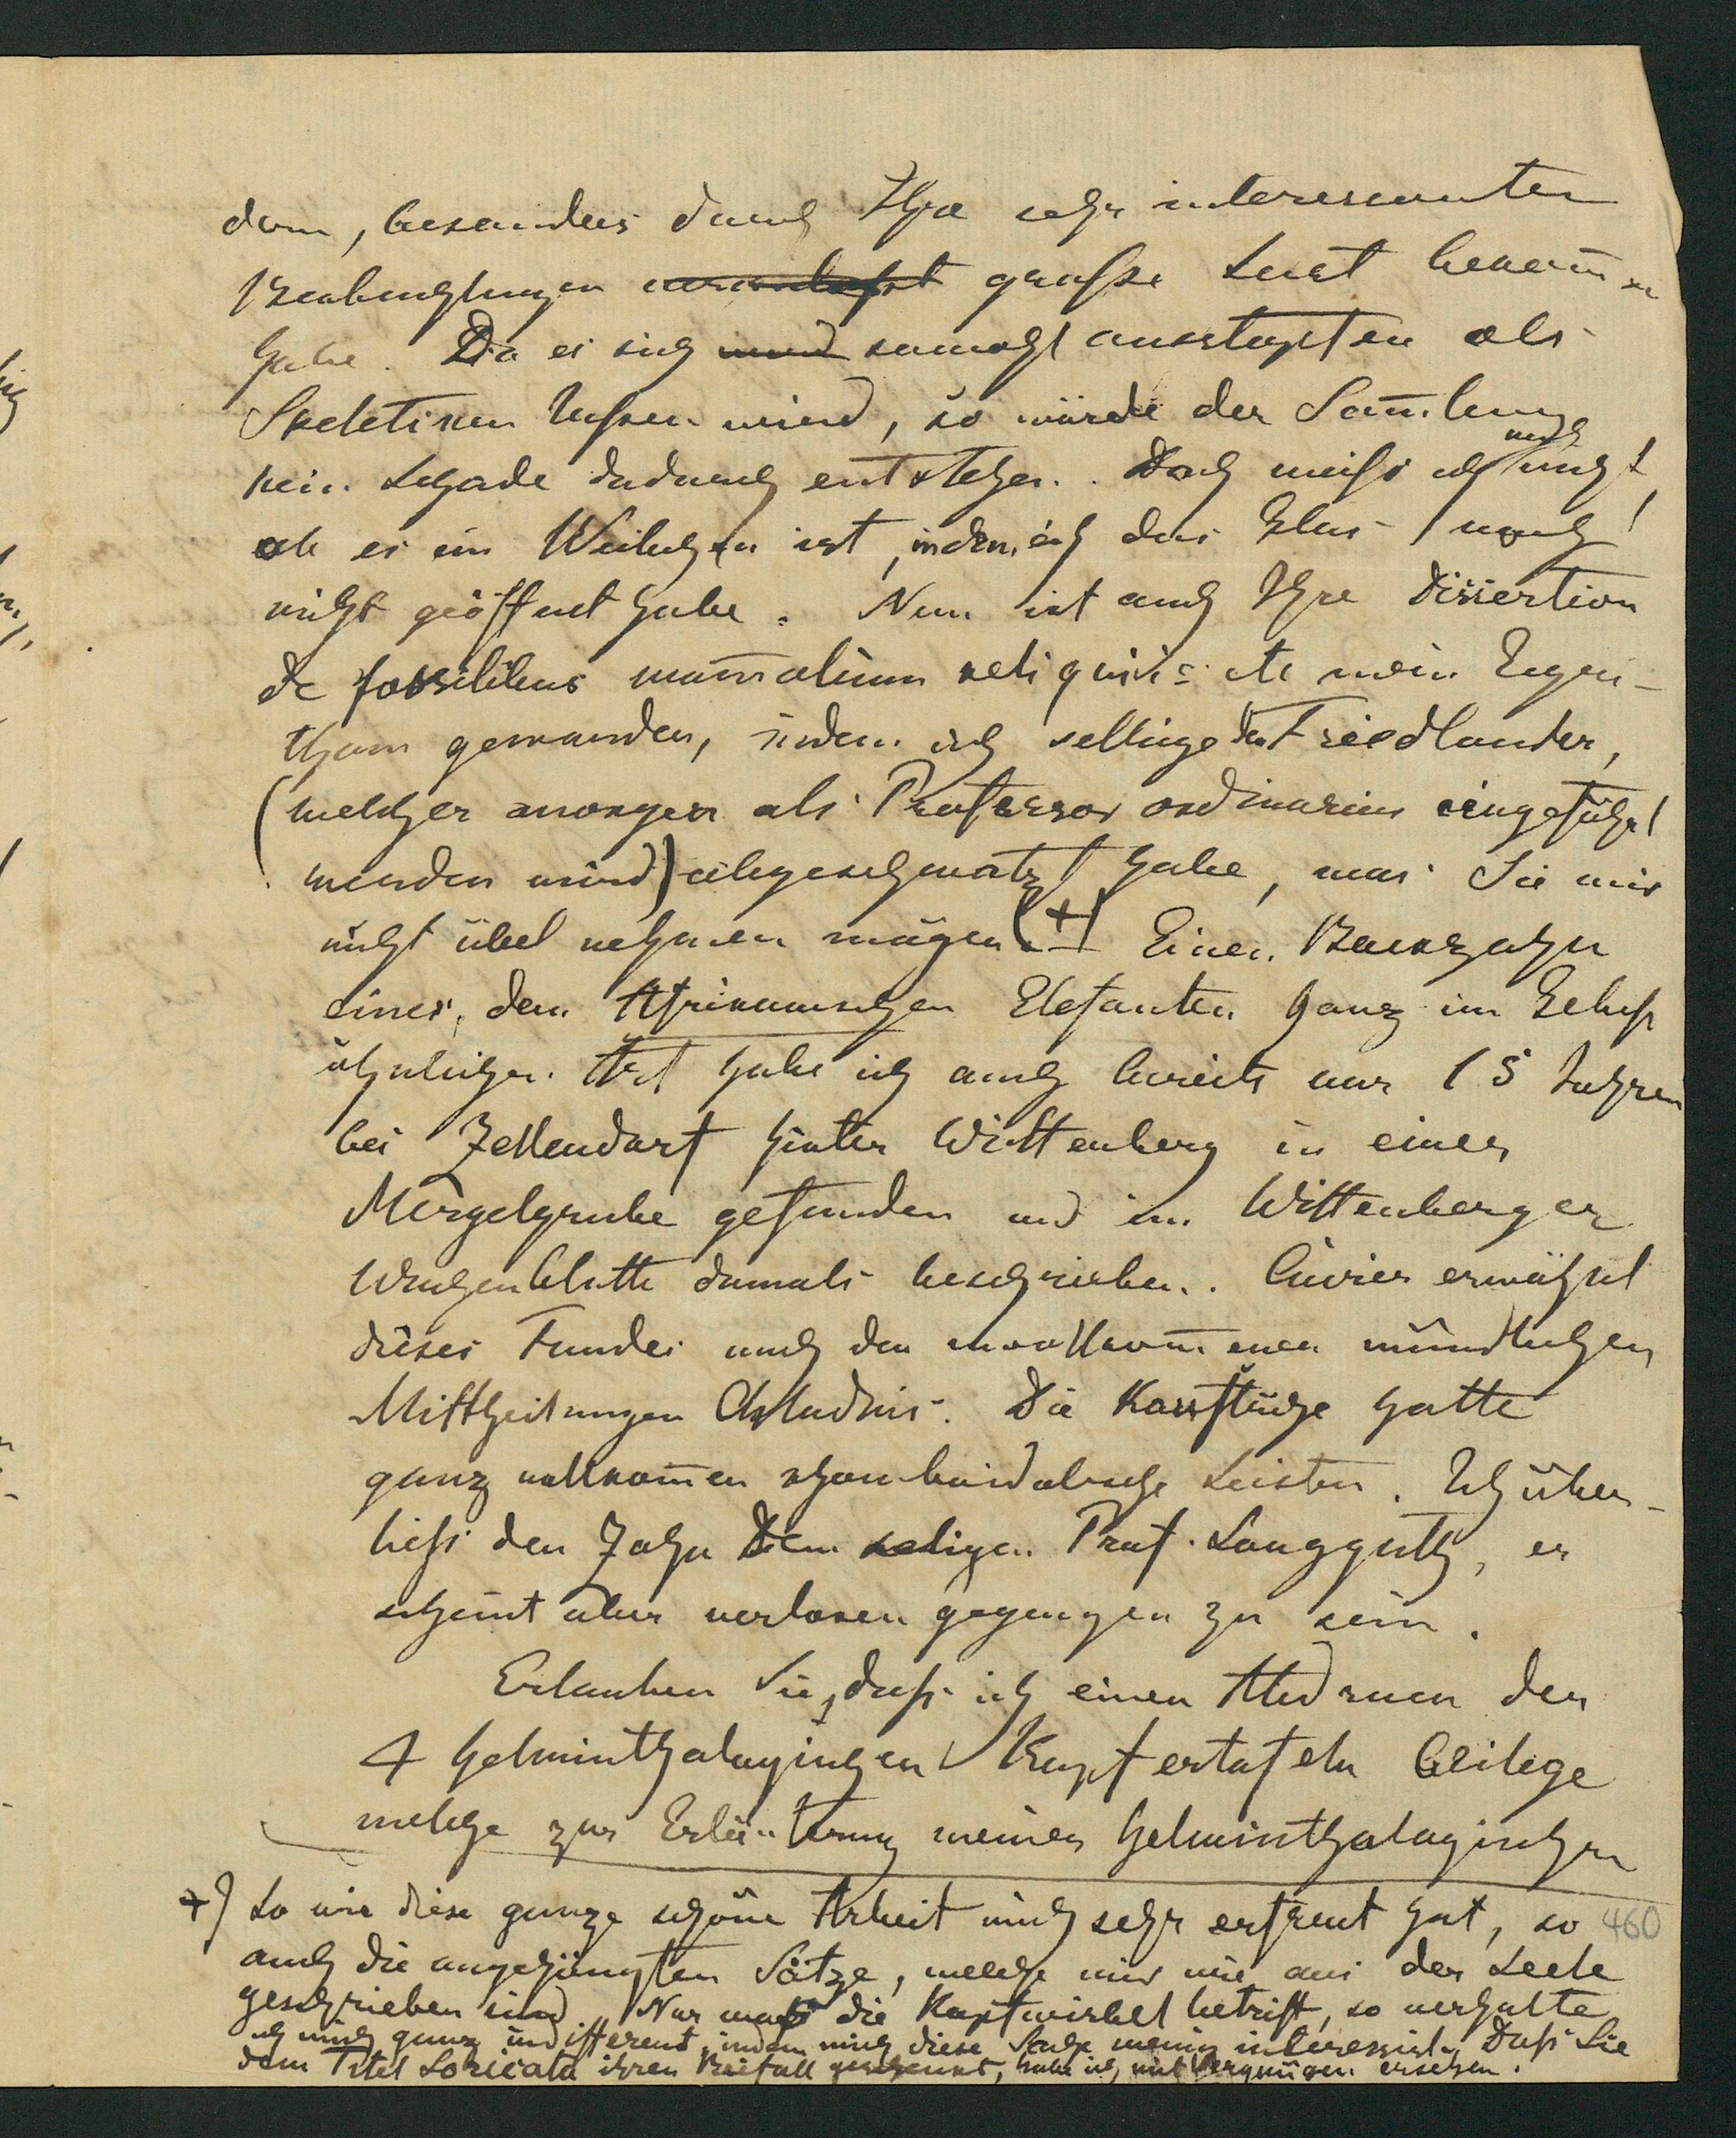 dern, besonders durch Ihre sehr interessanten
Beobachtungen große Lust bekom̅en
habe. Da es sich sowohl ausstopfen als
Skeletiren lassen wird, so würde der Sam̅lung
kein Schade dadurch entstehen. Doch weiß ich noch nicht
ob es ein Weibchen ist, indem ich das Glas noch
nicht geöffnet habe. Nun ist auch Ihre Dissertion
de fossilibus mam̅alium reliquiis etc mein Eigen-
thum geworden, indem ich selbige dem Friedlander,
(welcher morgen als Professor ordinarius eingeführt
werden wird) abgeschwatzt habe, was Sie mir
nicht übel nehmen mögen (+) Einen Backzahn
einer, dem Afrikanischen Elefanten ganz im Gebiß
ähnlichen Art habe ich auch bereits vor 15 Jahren
bei Zellendorf hinter Wittenberg in einer
Mergelgrube gefunden und im Wittenberger
Wochenblatte damals beschrieben. Cuvier erwähnt
dieses Fundes nach den unvollkom̅enen mündlichen
Mittheilungen Chladnis. Die Kaufläche hatte
ganz vollkom̅en rhomboidalische Leisten. Ich über-
ließ den Zahn dem seligen Prof. Langguth, er
scheint aber verloren gegangen zu sein.
Erlauben Sie, daß ich einen Abdruck der
4 helminthologischen Kupfertafeln beilege
welche zur Erläuterung meiner helminthologischen
+) So wie diese ganze schöne Arbeit mich sehr erfreut hat, so
460
auch die angehängten Sätze, welche mir wie aus der Seele
geschrieben sind. Nur was die Kopfwirbel betrift, so verhalte
ich mich ganz indifferent, indem mich diese Sache wenig interessirt. Daß Sie
dem Titel Loricata ihren Beifall geschenkt, habe ich mit Vergnügen ersehen.